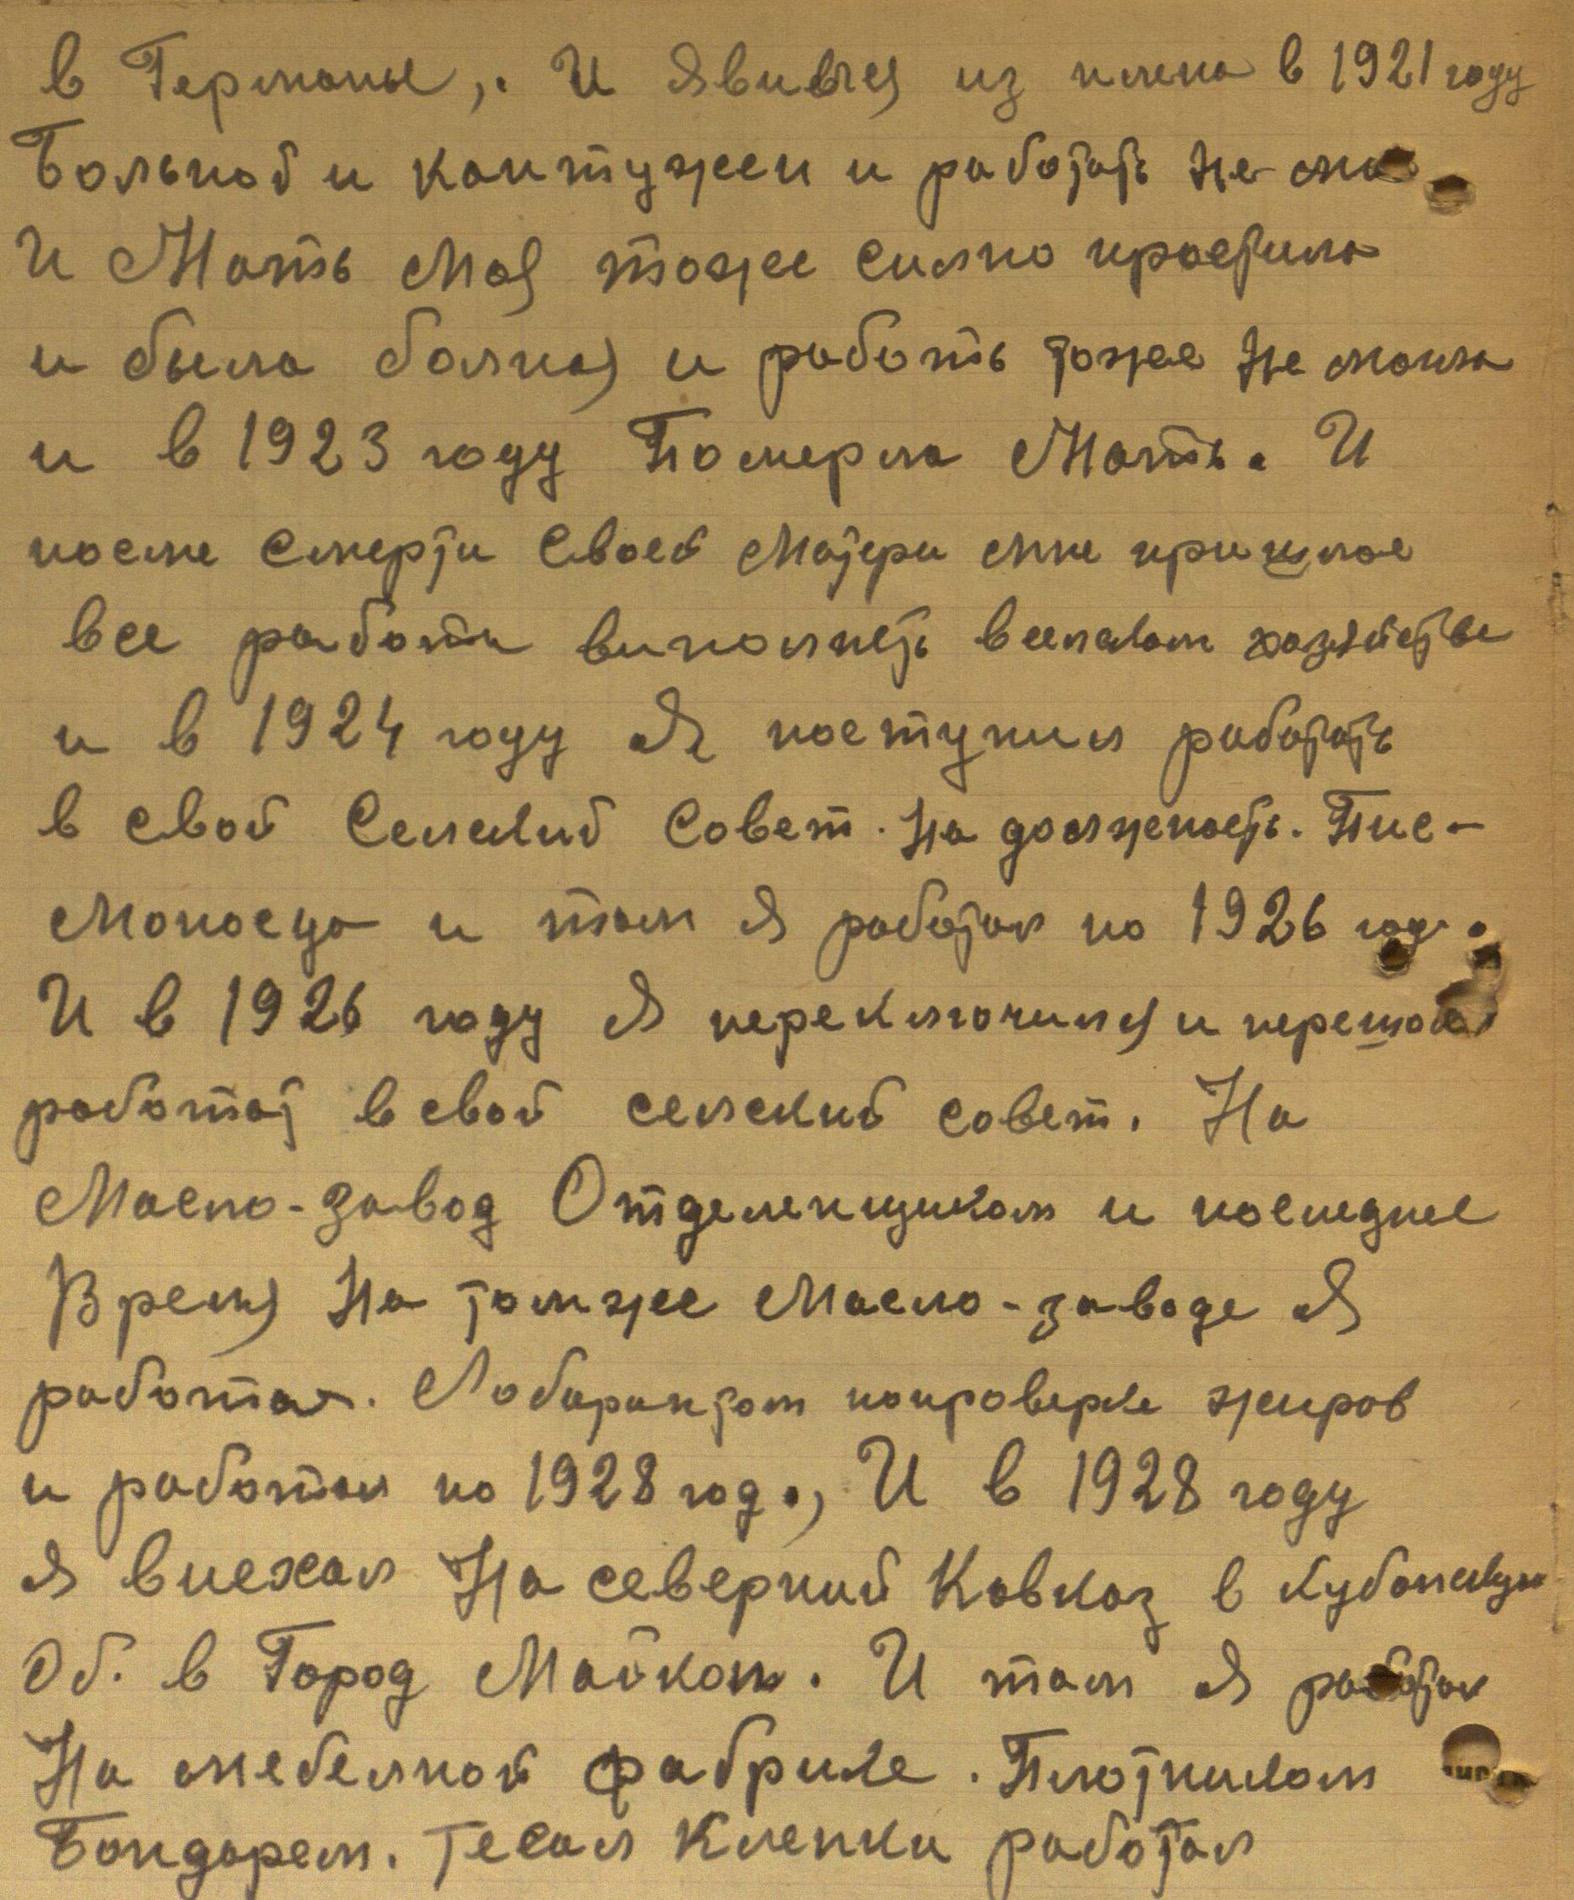 в Германы,. И явився из плена в 1921 году
Больной и контужен и работать не мог
И Мать моя тоже силно простила
и была болная и работь тоже не могла
и в 1923 году Померла Мать. И
после смерти своей матери мне пришлос
все работи виполнеть в селском хозяйстве
и в 1924 году я поступил работать
в свой Селский Совет. На должность. Пис-
моносца и там я работал по 1926 год.
И в 1926 году я переключился и перешол
работат в свой селский совет. На
Масло-завод Отделенщиком и последнее
Время На томже Масло-заводе я
работал. Лобарантом попроверке жиров
и работал по 1928 год., И в 1928 году
я виехал На северний Кавказ в Кубанскую
Об. в Город Майкоп. И там я работал
На мебелной фабрике. Плотником
Бондарем. Тесал Клепки работал